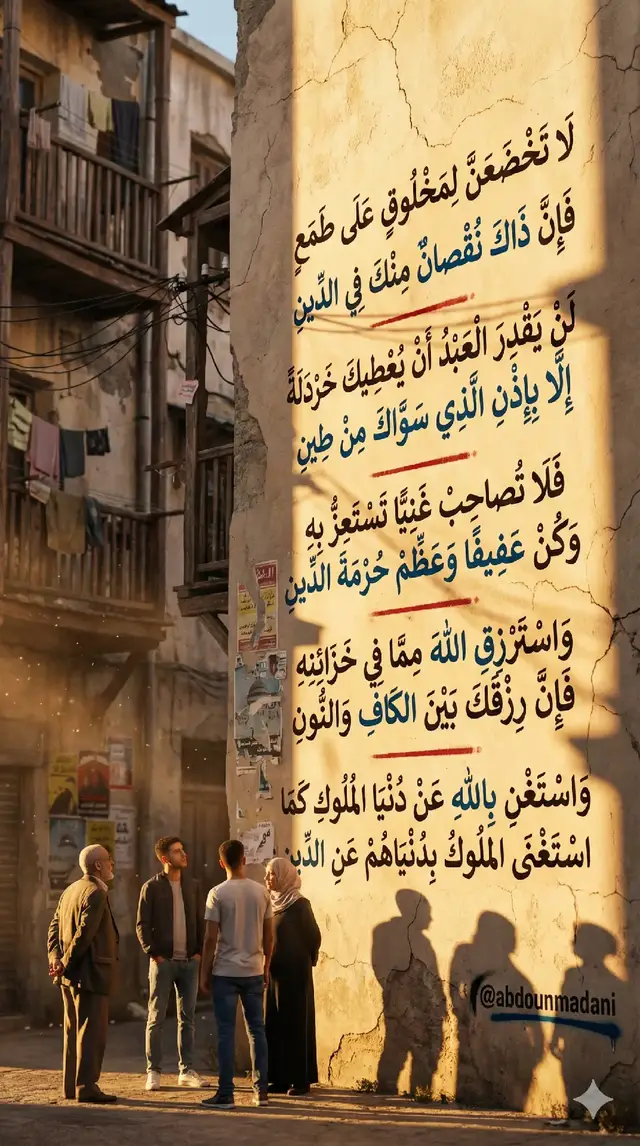 لَا تَخْضَعَنَّ لِمَخْلُوقٍ عَلَى طَمَعٍ
فَإِنَّ ذَاكَ نُقْصانٌ مِنْكَ فِي الدِّينِ
لَنْ يَقْدِرَ الْعَبْدُ أَنْ يُعْطِيكَ خَرْدَلَةً
إِلَّا بِإِذْنِ الَّذِي سَوَّاكَ مِنْ طِينِ
فَلَا تُصاحِبْ غَنِيًّا تَسْتَعِزُّ بِهِ
وَكُنْ عَفِيفًا وَعَظِّمْ حُرْمَةَ الدِّينِ
وَاسْتَرْزِقِ اللهَ مِمَّا فِي خَزَائِنِهِ
فَإِنَّ رِزْقَكَ بَيْنَ الكَافِ وَالنُّونِ
وَاسْتَغْنِ بِاللهِ عَنْ دُنْيَا المُلُوكِ كَمَا
اسْتَغْنَى المُلُوكُ بِدُنْيَاهُمْ عَنِ الدِّينِ
@abdounmadani